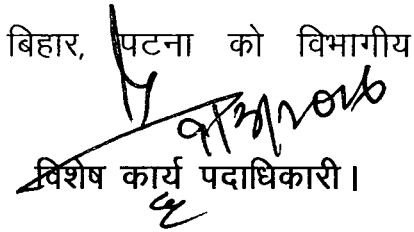 बिहार, पटना को विभागीय
विशेष कार्य पदाधिकारी।